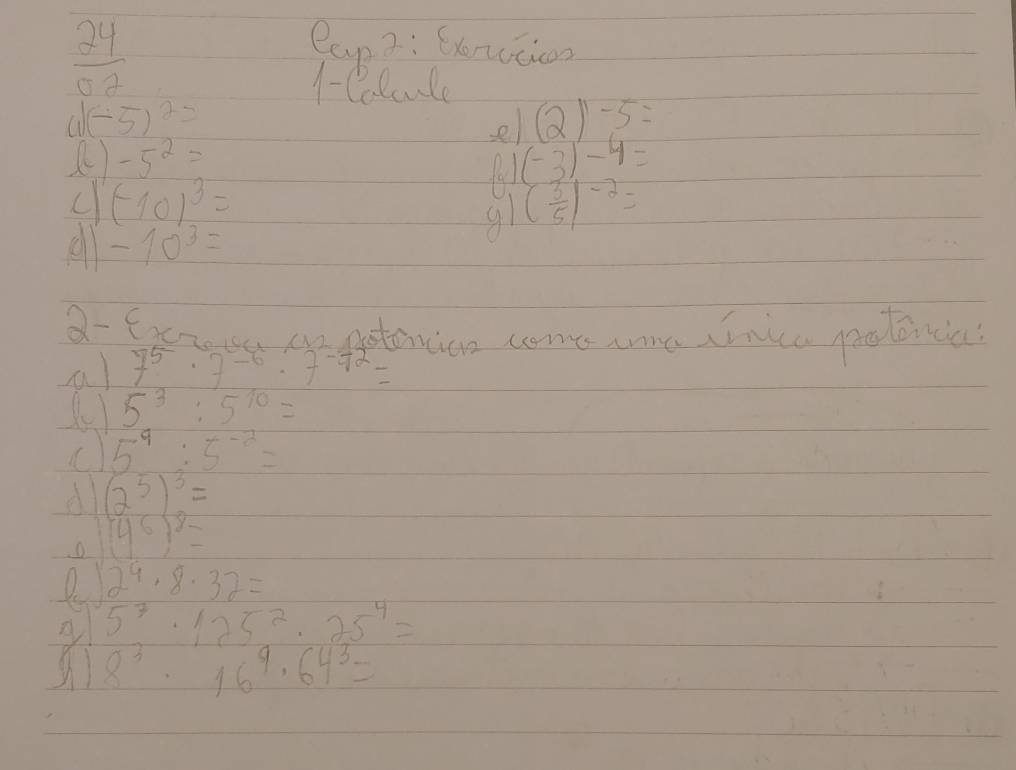 24/02
Cap 2: Exercícios
1- Calcule
a) (-5)² =
b) -5² =
c) (-10)³ =
d) -10³ =
e) (2)⁻⁵ =
f) (-3)⁻⁴ =
g) (3/5)⁻² =
2- Escreva as potências como uma única potência:
a) 7⁵ · 7⁻⁶ · 7⁻¹² =
b) 5³ : 5¹⁰ =
c) 5⁹ : 5⁻² =
d) (2⁵)³ =
e) (4⁶)⁸ =
f) 2⁴ · 8 · 32 =
g) 5⁷ · 125² · 25⁴ =
h) 8³ · 16⁹ · 64³ =